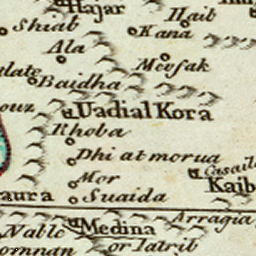 Hajar
Hail
Shiat
Kana
Ala
Mevsak
Baidha
Uadial Kora
Rhoba
Dhi at morua
Mor
Kaib
aura
Suaida
Arragia
Medina
or Iatrib